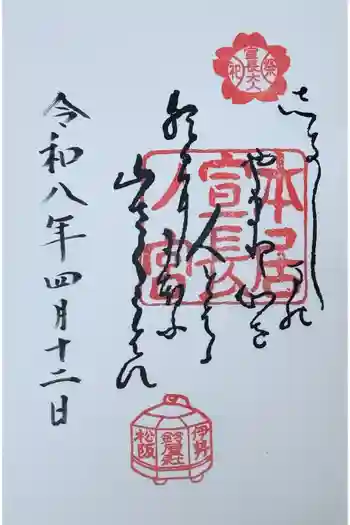 宣長大人
しき嶋の
やまと心を
人とはゝ
朝日ににほふ
山さくらはな
本居
宣長
ノ宮
令和八年四月十二日
伊勢
鈴屋社
松阪